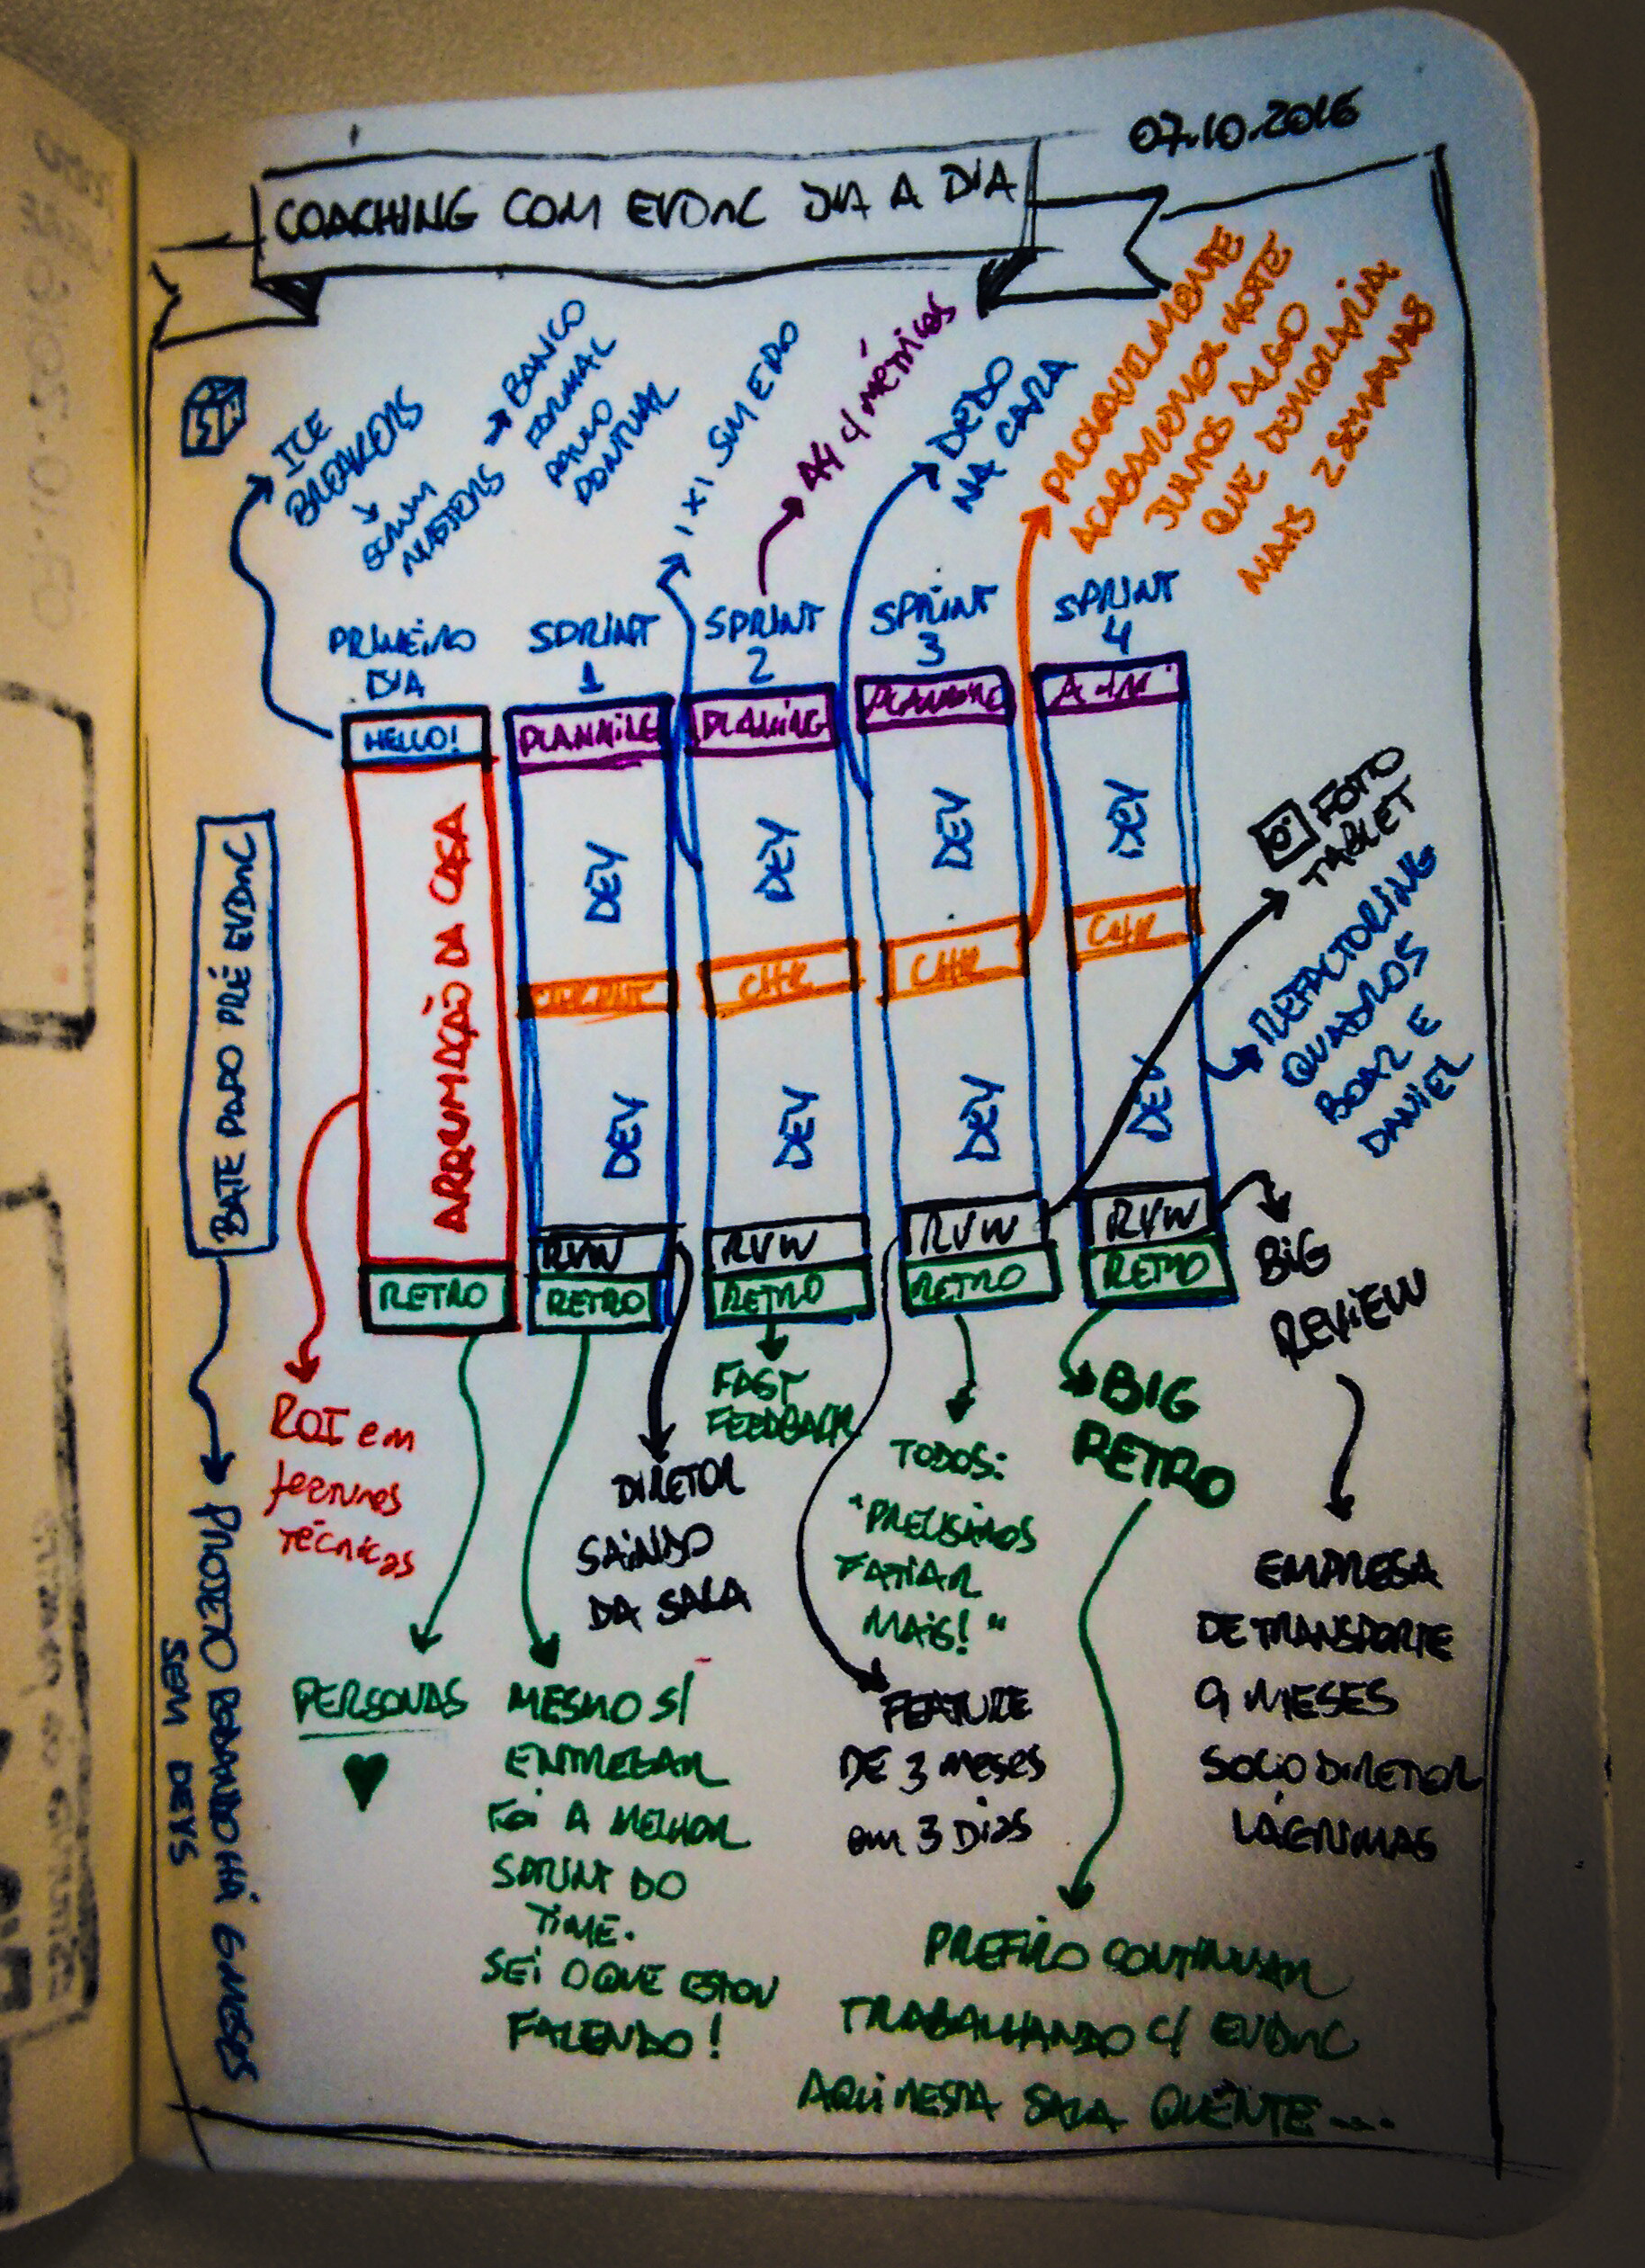 07.10.2016
COACHING COM EVDNC DIA A DIA
ICE
BREAKERS
SCRUM
MASTERS
BANCO
FORMAL
PONTUAL
1x1 SM E DO
A4 c/ métricas
DEDO
NA CARA
PROVAVELMENTE
ACABAREMOS HOJE
JUNTOS ALGO
QUE DEMORARIA
MAIS 2 SEMANAS
PRIMEIRO
DIA
SPRINT
1
SPRINT
2
SPRINT
3
SPRINT
4
HELLO!
PLANNING
PLANING
PLANNING
ARRUMAÇÃO DA CASA
DEV
DEV
DEV
DEV
CHK
CHK
CHK
DEV
DEV
DEV
DEV
RVW
RVW
RVW
RVW
RETRO
RETRO
RETRO
RETRO
RETRO
FOTO
TABLET
REFACTORING
QUADROS
BOAZ E
DANIEL
BATE PAPO PRÉ EVDNC
PROJETO PARADO HÁ 6 MESES
SEM DEVS
ROI em
features
técnicas
PERSONAS
MESMO S/
ENTREGAR
FOI A MELHOR
SPRINT DO
TIME.
SEI O QUE ESTOU
FAZENDO!
DIRETOR
SAINDO
DA SALA
FAST
FEEDBACK
TODOS:
"PRECISAMOS
FATIAR
MAIS!"
FEATURE
DE 3 MESES
em 3 Dias
BIG
RETRO
PREFIRO CONTINUAR
TRABALHANDO C/ EVDNC
AQUI NESTA SALA QUENTE....
BIG
REVIEW
EMPRESA
DE TRANSPORTE
9 MESES
SOCIO DIRETOR
LÁGRIMAS